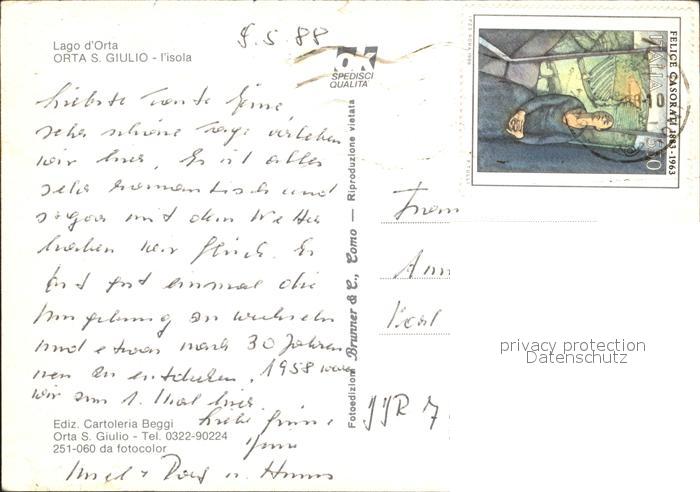 9.5.88
Lago d'Orta
ORTA S. GIULIO - l'isola
ok
SPEDISCI
QUALITÀ
FELICE CASORATI 1883-1963
ITALIA
Liebste Tante
sehr schöne Tage verleben
wir hier. Es ist alles
sehr romantisch und
sogar mit dem Wetter
haben wir Glück. Es
tut gut einmal die
Umgebung zu wechseln
und etwas nach 30 Jahren
neu zu entdecken. 1958 waren
wir zum 1. Mal hier.
Liebe Grüsse
Fotoedizioni Brunner & C., Como — Riproduzione vietata
Ediz. Cartoleria Beggi
Orta S. Giulio - Tel. 0322-90224
251-060 da fotocolor
privacy protection
Datenschutz